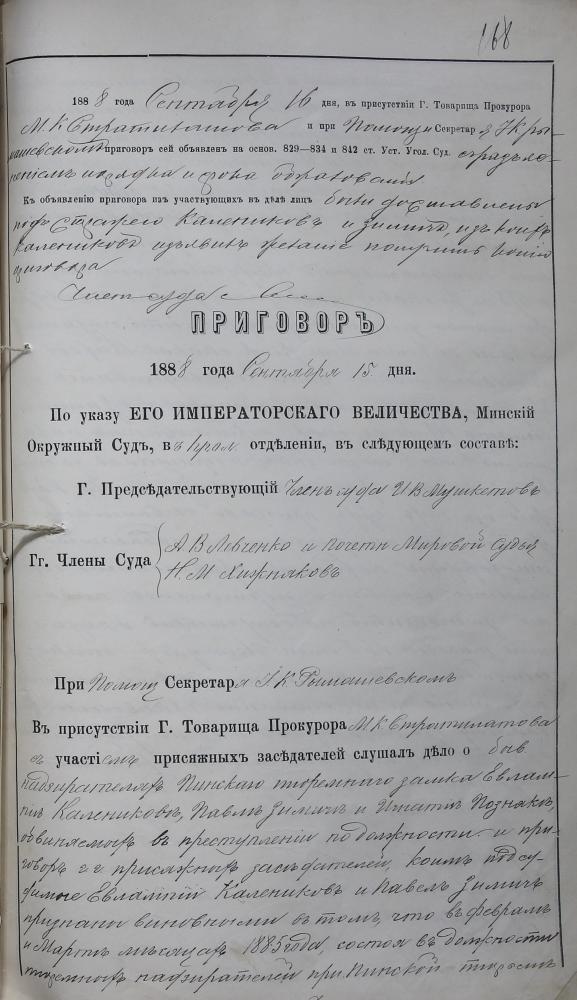 168
1888 года Сентября 16 дня, въ присутствіи Г. Товарища Прокурора
М. К. Стратилатова и при Помощн Секретаря І К Ры-
машевскомъ приговоръ сей объявленъ на основ. 829—834 и 842 ст. Уст. Угол. Суд. съ разъяс-
неніемъ порядка и срока обжалованія
Къ объявленію приговора изъ участвующихъ въ дѣлѣ лицъ были доставлены
подъ стражею Калениковъ и Зимичъ, изъ коихъ
Калениковъ изъявилъ желаніе получить копію
приговора
Членъ суда
ПРИГОВОРЪ
1888 года Сентября 15 дня.
По указу ЕГО ИМПЕРАТОРСКАГО ВЕЛИЧЕСТВА, Минскій
Окружный Судъ, въ отдѣленіи, въ слѣдующемъ составѣ:
Г. Предсѣдательствующій Членъ суда И В Мушкетовъ
Гг. Члены Суда А В Левченко и Почетн Мировой Судья
Н. М Хижняковъ
При Помощ Секретаря І К Рымашевскомъ
Въ присутствіи Г. Товарища Прокурора М К Стратилатова
съ участіемъ присяжныхъ засѣдателей слушалъ дѣло о быв
надзирателяхъ Пинскаго тюремнаго замка Евлам-
піѣ Калениковѣ, Павлѣ Зимичѣ и Игнатіѣ Познякѣ,
обвиняемыхъ въ преступленіи по должности и при-
говоръ гг. присяжныхъ засѣдателей, коимъ подсу-
димые Евлампій Калениковъ и Павелъ Зимичъ
признаны виновными въ томъ, что въ Февралѣ
и Мартѣ мѣсяцахъ 1885 года, состоя въ должности
тюремныхъ надзирателей при Пинской тюрьмѣ